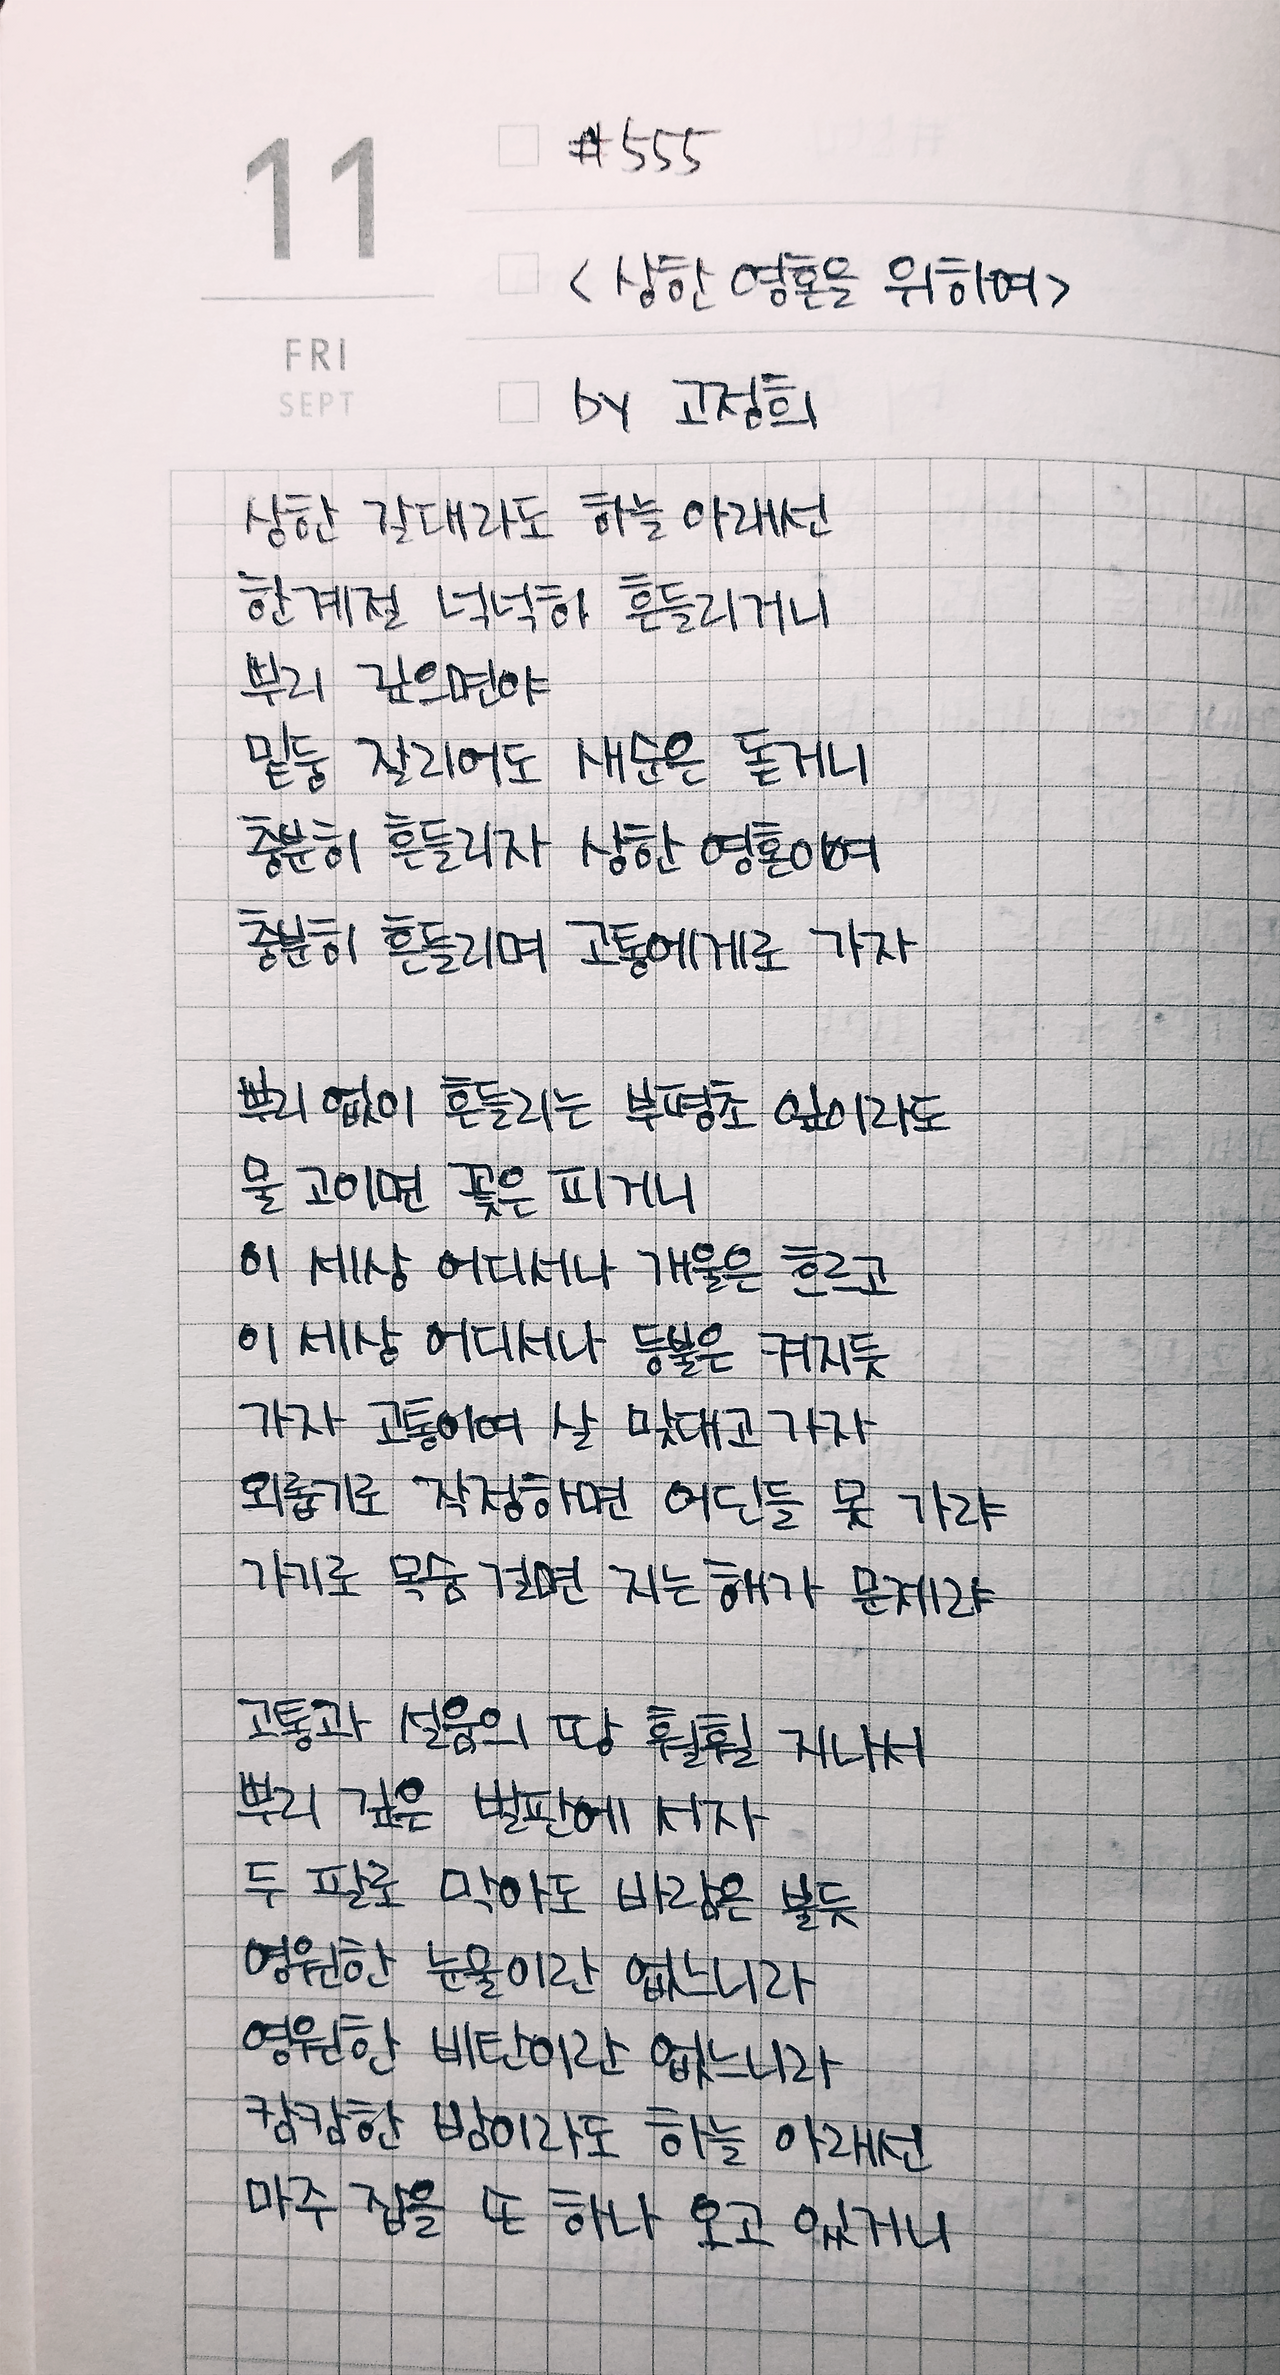 11
FRI
SEPT
#555
<상한 영혼을 위하여>
by 고정희
상한 갈대라도 하늘 아래선
한계절 넉넉히 흔들리거니
뿌리 깊으면야
밑둥 잘리어도 새순은 돋거니
충분히 흔들리자 상한 영혼이여
충분히 흔들리며 고통에게로 가자
뿌리 없이 흔들리는 부평초 잎이라도
물 고이면 꽃은 피거니
이 세상 어디서나 개울은 흐르고
이 세상 어디서나 등불은 켜지듯
가자 고통이여 살 맞대고 가자
외롭기로 작정하면 어딘들 못 가랴
가기로 목숨 걸면 지는 해가 문제랴
고통과 설움의 땅 훨훨 지나서
뿌리 깊은 벌판에 서자
두 팔로 막아도 바람은 불듯
영원한 눈물이란 없느니라
영원한 비탄이란 없느니라
캄캄한 밤이라도 하늘 아래선
마주 잡을 또 하나 오고 있거니